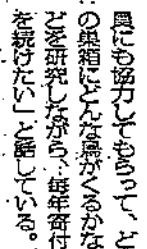 員にも協力してもらって、ど
の巣箱にどんな鳥がくるかな
どを研究しながら、毎年寄付
を続けたい」と話している。